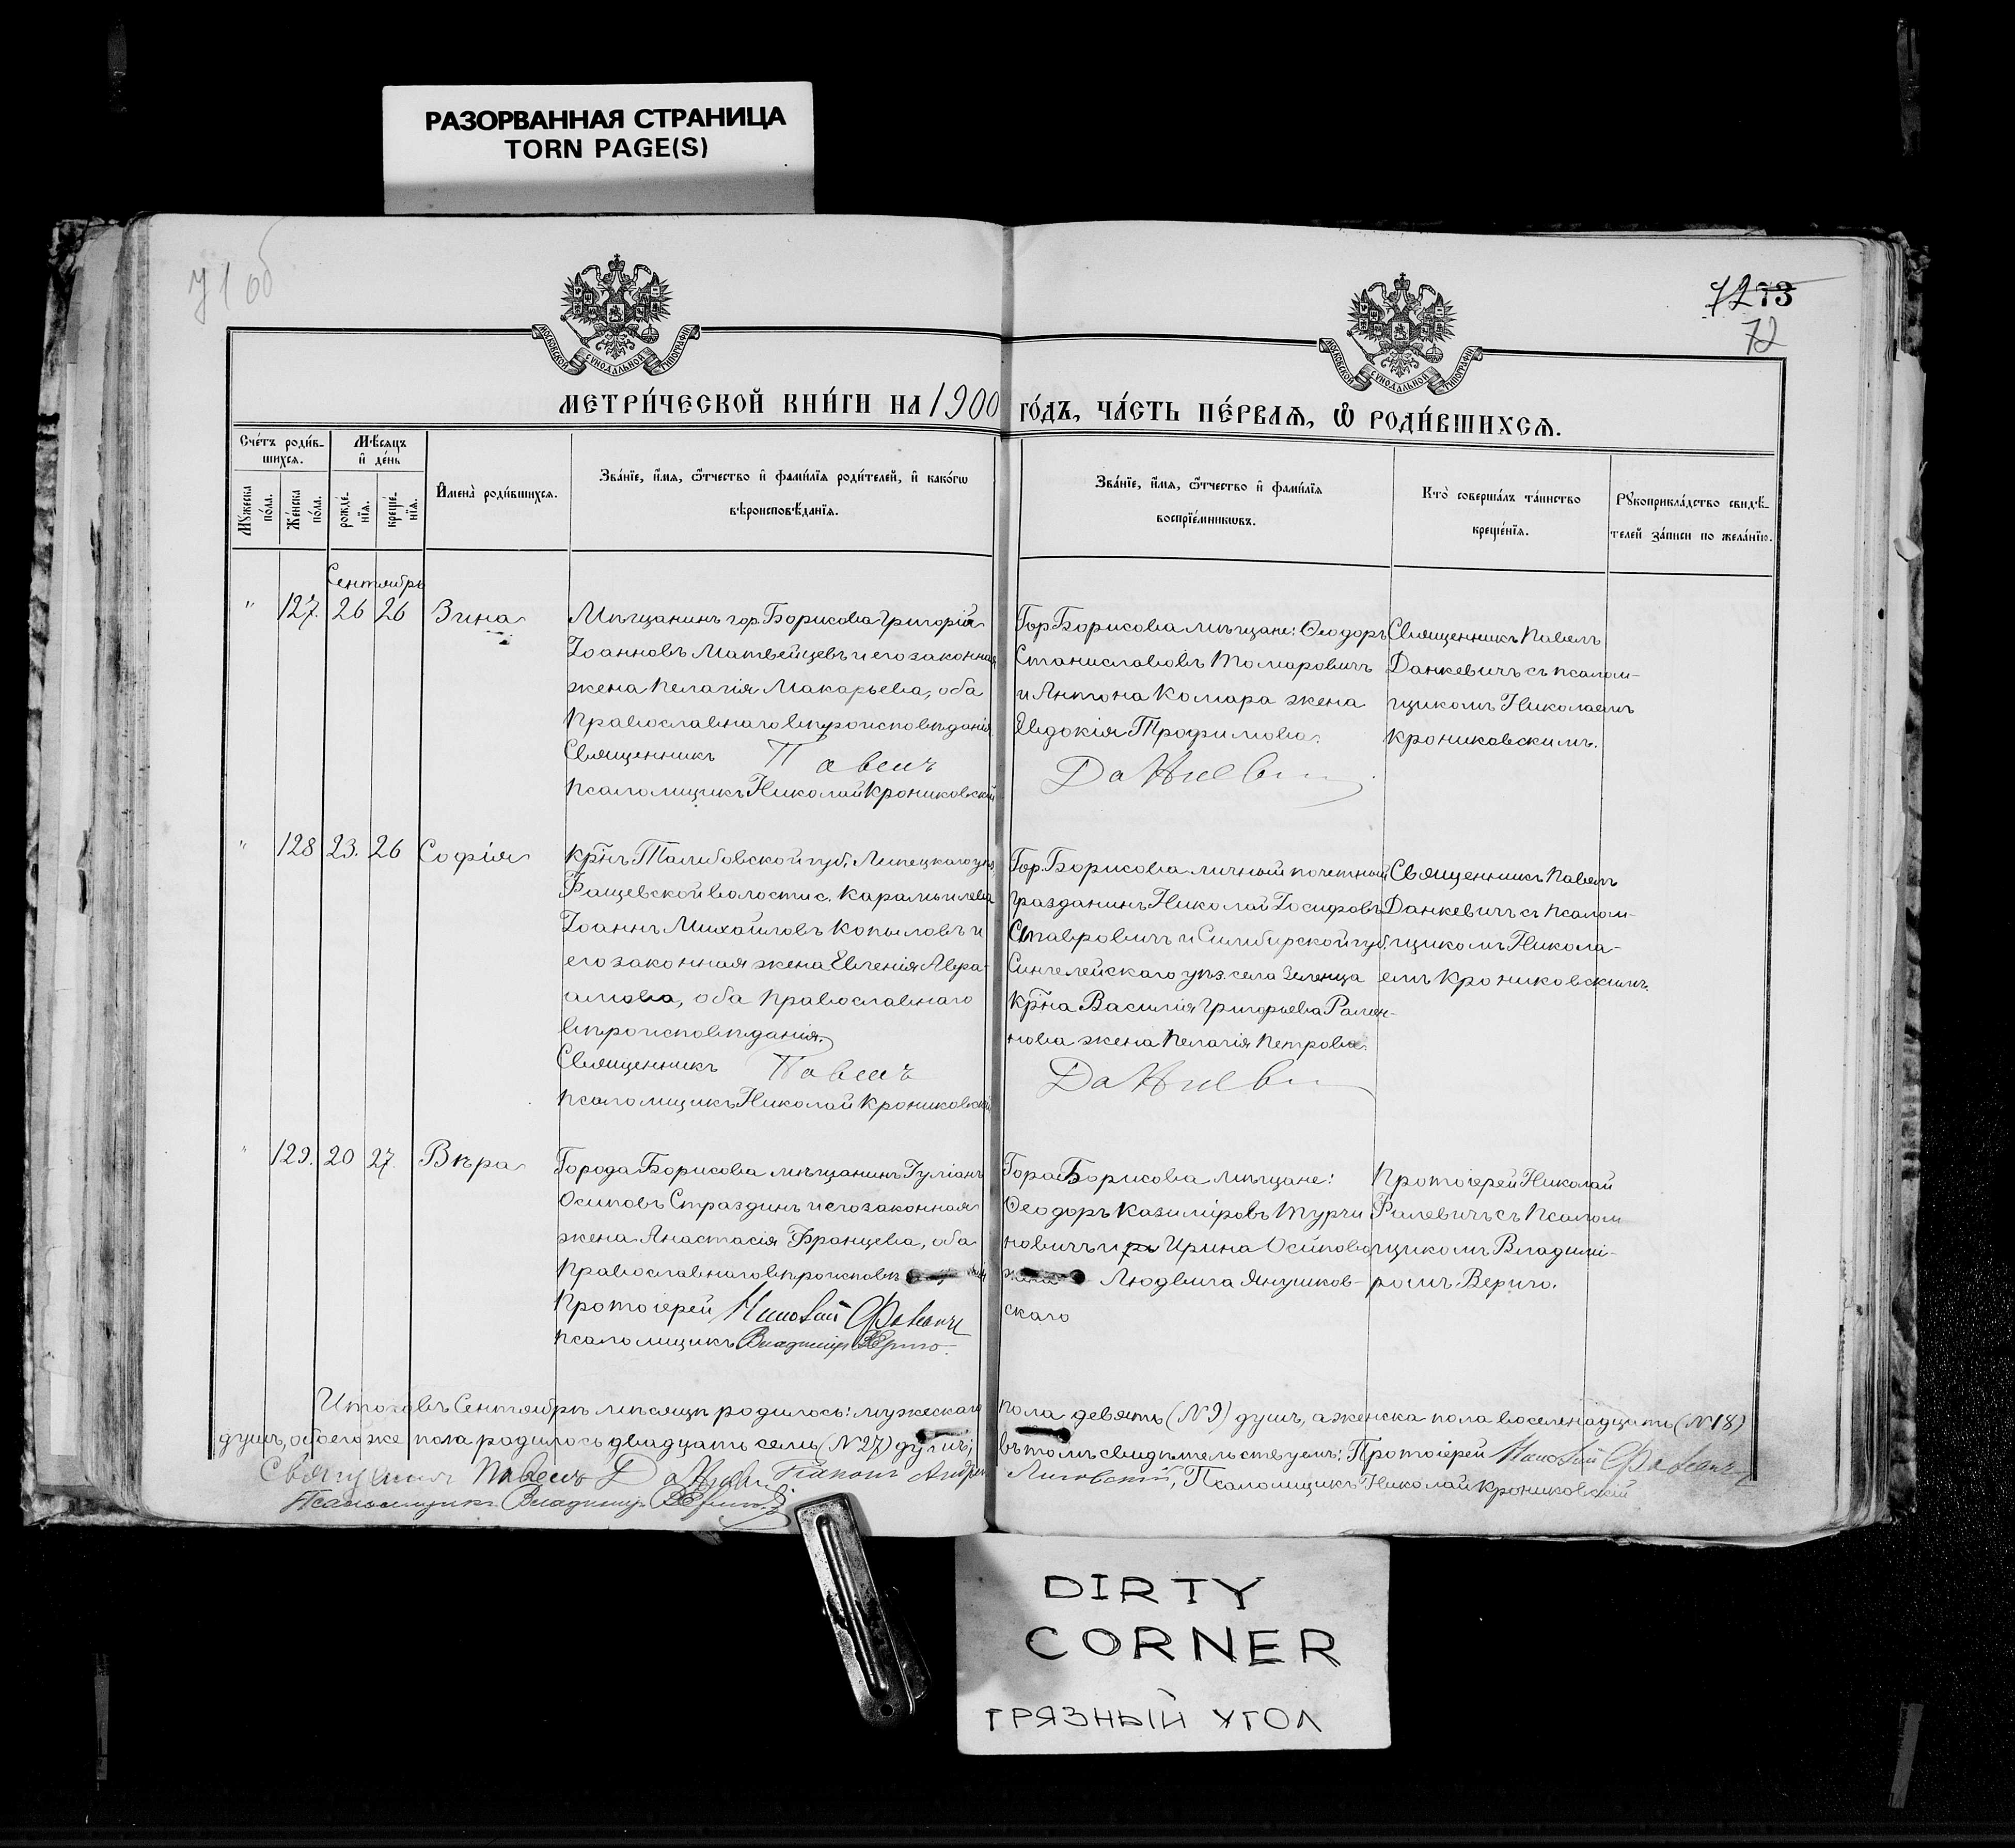 РАЗОРВАННАЯ СТРАНИЦА
TORN PAGE(S)
71 об
72 73
72
МОСКОВСКОЙ СѴНОДАЛЬНОЙ ТИПОГРАФІИ
МОСКОВСКОЙ СѴНОДАЛЬНОЙ ТИПОГРАФІИ
МЕТРИ́ЧЕСКОЙ КНИ́ГИ НА 1900 ГО́ДЪ, ЧА́СТЬ ПЕ́РВАѦ, Ѿ РОДИ́ВШИХСѦ.
Сче́тъ роди́в-
шихся.
Мѣсяцъ
и҆ де́нь
Мꙋ́жеска
по́ла.
Же́нска
по́ла.
рожде́-
нїя.
креще́-
нїя.
И҆мена̀ роди́вшихся.
Зва́нїе, и҆́мя, ѻ҆́тчество и҆ фами́лїя роди́телей, и҆ како́гѡ
вѣроисповѣ́данїя.
Зва́нїе, и҆́мя, ѻ҆́тчество и҆ фами́лїя
воспрїе́мникѡвъ.
Кто̀ соверша́лъ та́инство
креще́нїя.
Рꙋкоприкла́дство свидѣ́-
телей за́писи по жела́нїю.
Сентябрь
" 127. 26 26 Зина
Мѣщанинъ гор. Борисова Григорій
Іоанновъ Матвейцевъ и его законная
жена Пелагія Макарьева, оба
православнаго вѣроисповѣданія.
Священникъ Павелъ
Псаломщикъ Николай Крониковскій
Гор. Борисова мѣщане: Ѳеодоръ
Станиславовъ Томаровичъ
и Антона Комара жена
Евдокія Трофимова.
Священникъ Павелъ
Данкевичъ съ псалом-
щикомъ Николаемъ
Крониковскимъ.
" 128 23. 26 София
Кр̃нъ Тамбовской губ. Липецкаго уѣз.
Фащевской волости с.
Іоаннъ Михайловъ Копыловъ и
его законная жена Евгенія Авра-
амова, оба православнаго
вѣроисповѣданія.
Священникъ Павелъ
Псаломщикъ Николай Крониковскій
Гор. Борисова личный почетный
гражданинъ Николай Іосифовъ
Ставровичъ и Симбирской губ.
Сингелейскаго уѣз. села Зеленца
кр̃на Василія Григорьева Роман-
нова жена Пелагія Петрова.
Священникъ Павелъ
Данкевичъ съ псалом-
щикомъ Никола-
емъ Крониковскимъ.
" 129. 20 27. Вѣра
Города Борисова мѣщанинъ Іуліанъ
Осиповъ Страздинъ и его законная
жена Анастасія Францева, оба
православнаго вѣроисповѣ
Протоіерей Николай
Псаломщикъ Владиміръ Вериго.
Гора Борисова мѣщане:
Ѳеодоръ Казиміровъ Турчи
новичъ и Ирина Осипова
жена Людвига Янушков-
скаго
Протоіерей Николай
съ псалом
щикомъ Владимі-
ромъ Вериго.
Итого въ Сентябрѣ мѣсяцѣ родилось: мужескаго пола девять (№ 9) душъ, а женска пола восемнадцать (№ 18)
душъ, обоего же пола родилось двадцать семь (№ 27) душъ; въ томъ свидѣтельствуемъ: Протоіерей Николай
Священникъ Павелъ Діаконъ Андрей Лисовскій, Псаломщикъ Николай Крониковскій
Псаломщикъ Владиміръ Вериго.
DIRTY
CORNER
ГРЯЗНЫЙ УГОЛ